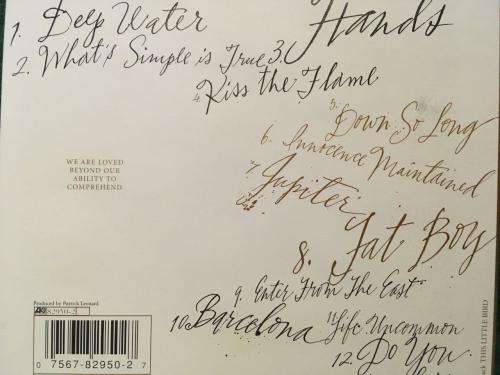 1. Deep Water
2. What's Simple is True 3. Hands
4. Kiss the Flame
5. Down So Long
6. Innocence Maintained
7. Jupiter
8. Fat Boy
9. Enter From The East
10. Barcelona 11. Life Uncommon
12. Do You
WE ARE LOVED
BEYOND OUR
ABILITY TO
COMPREHEND
Produced by Patrick Leonard
82950-2
0 7567-82950-2 7
THIS LITTLE BIRD